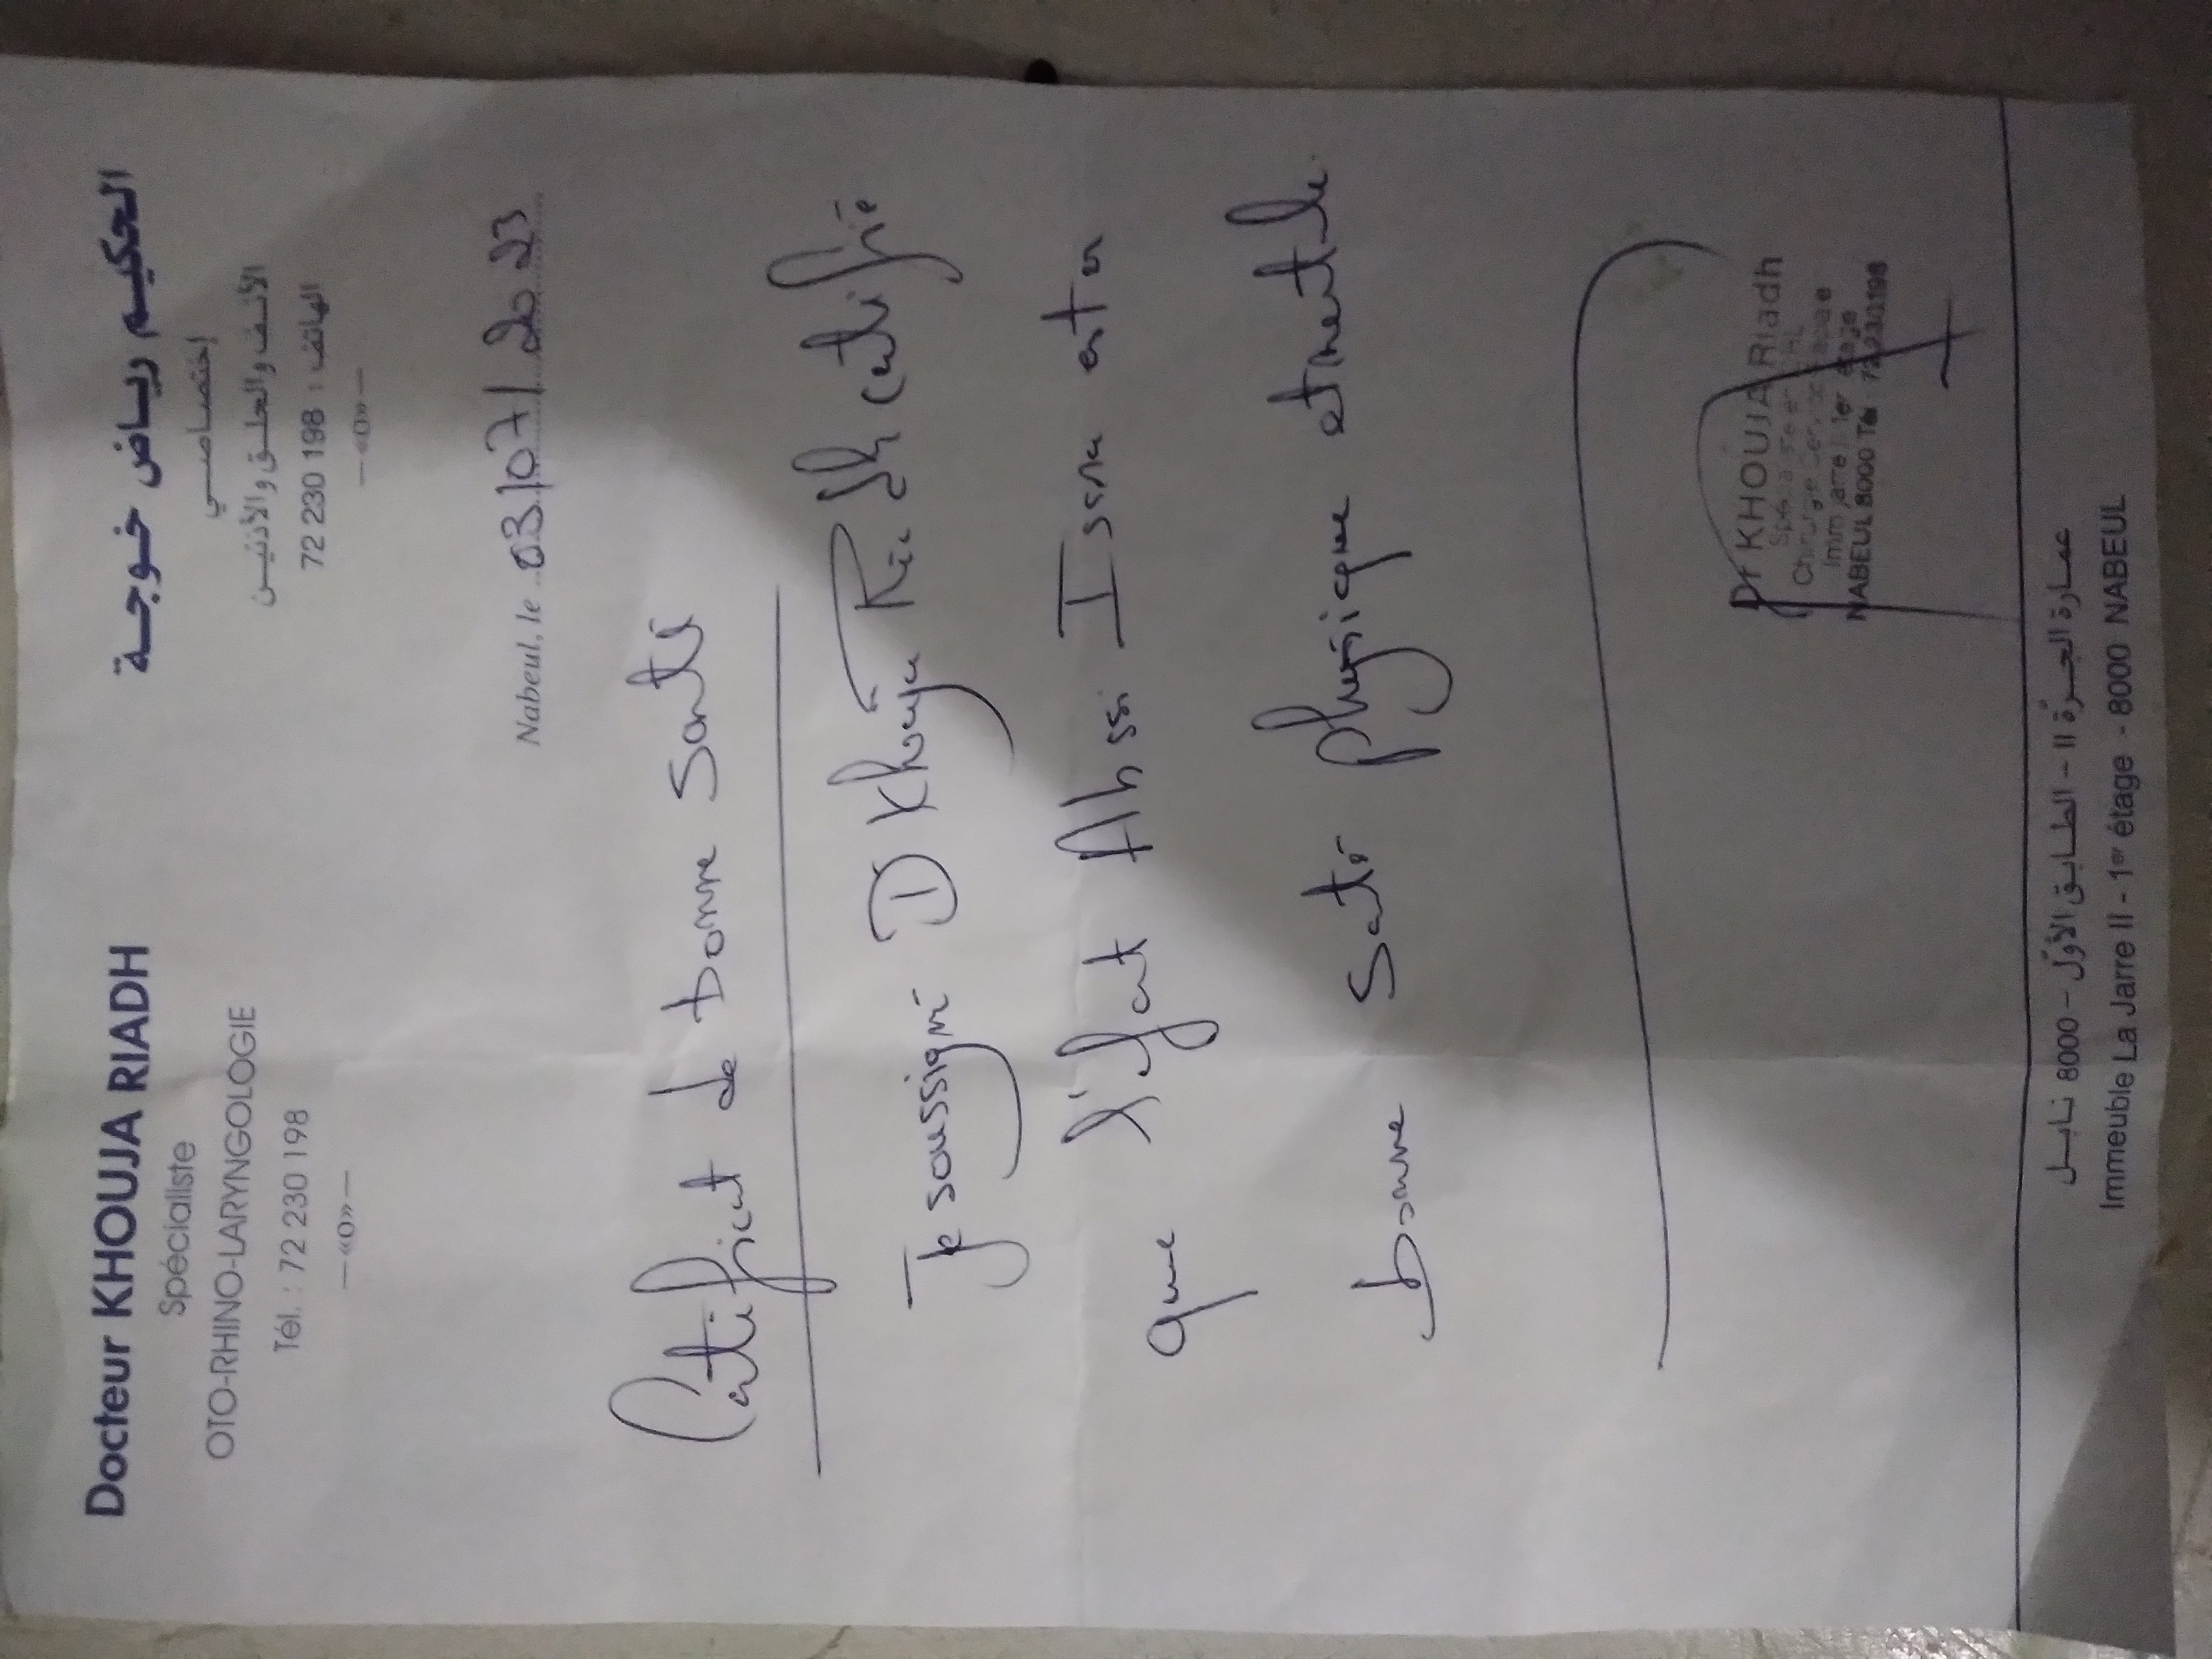 Docteur KHOUJA RIADH
Spécialiste
OTO-RHINO-LARYNGOLOGIE
Tél. : 72 230 198
—«o»—
الحكيم رياض خوجة
إختصاصي
الأنف والحلق والأذنين
الهاتف : 198 230 72
—«o»—
Nabeul, le 03/07/2023
Certificat de bonne Santé
Je soussigné Dr Khouja Riadh certifie
que l'Enfant Abssi Issra est en
bonne Santé physique et mentale.
Dr KHOUJA Riadh
Imm Jarre II 1er étage
NABEUL 8000 Tél 72 230 198
عمارة الجرّة II – الطابق الأوّل – 8000 نابل
Immeuble La Jarre II - 1er étage - 8000 NABEUL